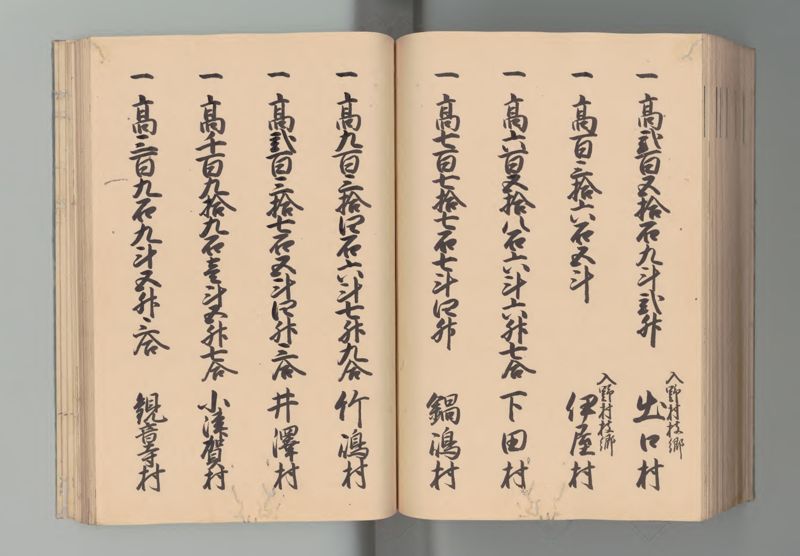 一 高弐百五拾石九斗弐升 入野村枝郷 出口村
一 高百三拾六石五斗 入野村枝郷 伊屋村
一 高六百五拾八石六斗六升七合 下田村
一 高七百七拾七石七斗四升 鍋嶋村
一 高九百三拾四石六斗七升九合 竹嶋村
一 高弐百三拾七石五斗四升三合 井澤村
一 高千百九拾九石壱斗五升七合 小津賀村
一 高三百九石九斗五升三合 観音寺村